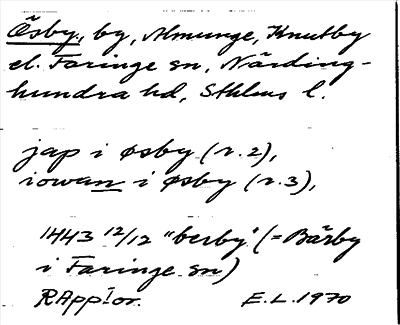 Ösby, by, Almunge, Knutby
el. Faringe sn, Närding-
hundra hd, Sthlms l.
jap i øsby (r. 2),
iowan i øsby (r. 3),
1443 12/12 "berby" (= Bärby
i Faringe sn)
RApp! or.
E. L. 1970